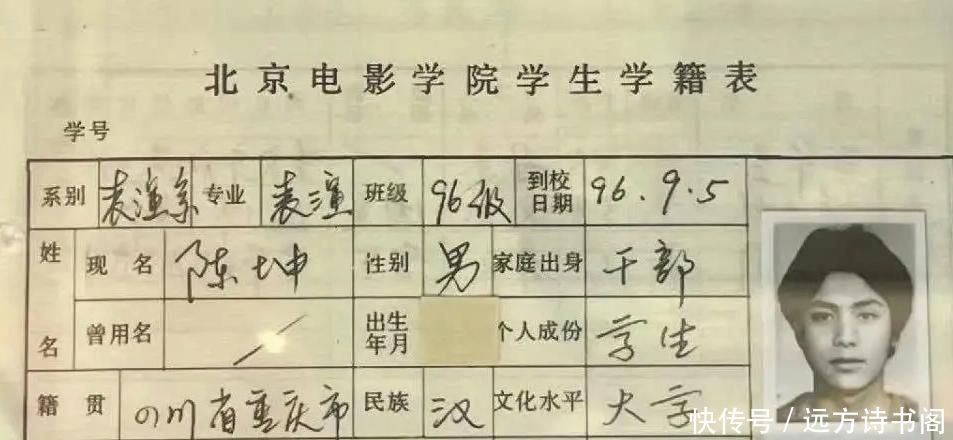 北京电影学院学生学籍表
学号
系别 表演系 专业 表演 班级 96级 到校日期 96.9.5
姓名 现名 陈坤 性别 男 家庭出身 干部
曾用名 / 出生年月 个人成份 学生
籍贯 四川省重庆市 民族 汉 文化水平 大学
快传号 / 远方诗书阁